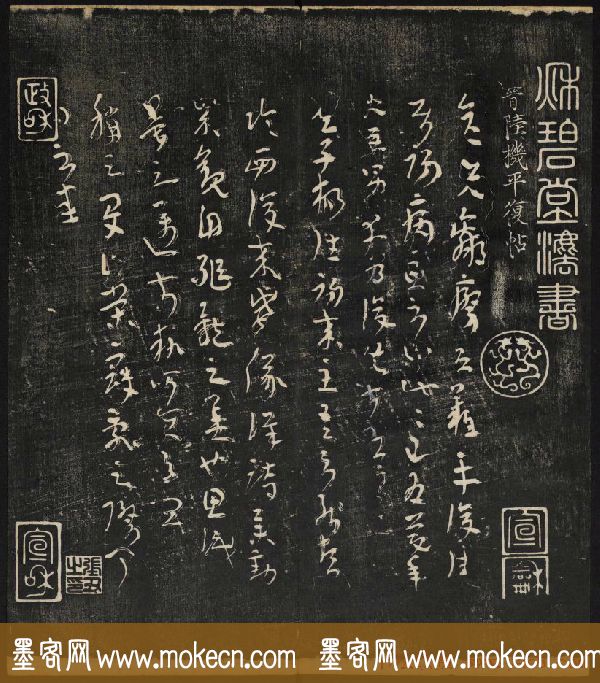 秌碧堂灋書
晉陸機平復帖
彦先羸瘵恐難平復往
屬初病慮不止此此已為慶承
使唯男幸為復失前憂耳
吳子楊往初來主吾不能盡
臨西復來威儀詳跱舉動
成觀自軀體之美也思識
量之邁前執所恒有宜
稱之夏伯榮寇亂之際聞
問不悉
政和
宣和
宣和
墨客网 www.mokecn.com 墨客网 www.mokecn.com